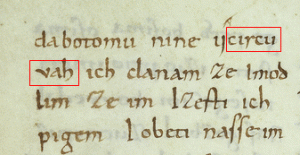 dabotomu nine ijcırcu
vah ich clanam ze lmod
lim ze im lzesti ich
pigem lobeti nasse im